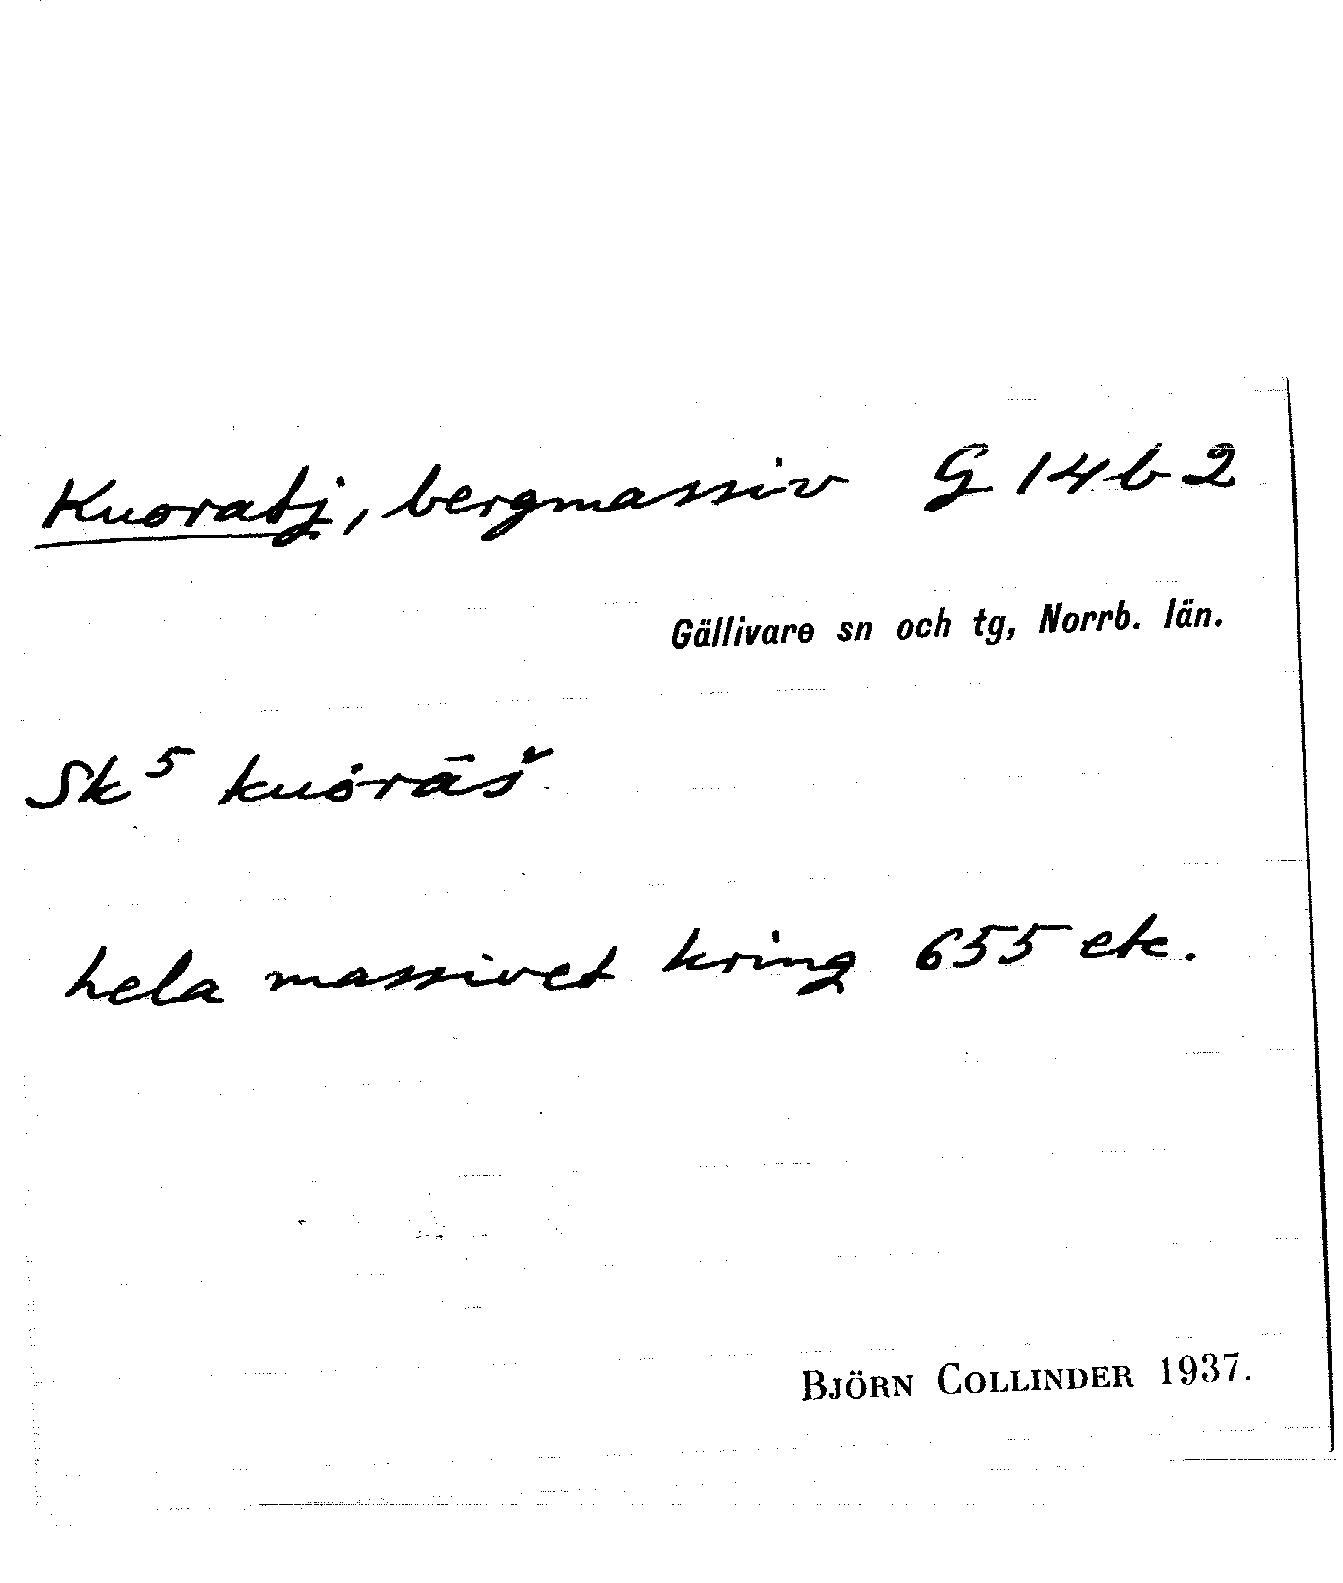 Kuoratj, bergmassiv G 14b2
Gällivare sn och tg, Norrb. län.
Sk⁵ kuȯrāš
hela massivet kring 655 etc.
BJÖRN COLLINDER 1937.